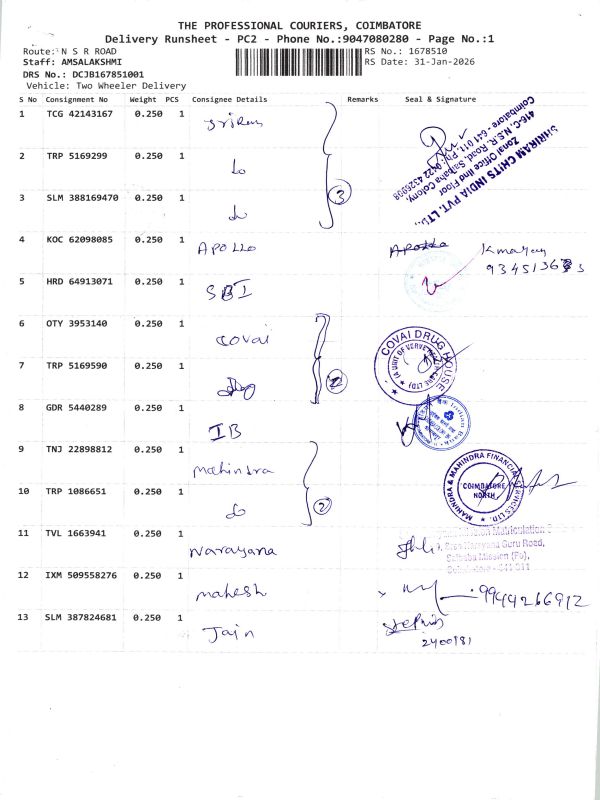 THE PROFESSIONAL COURIERS, COIMBATORE
Delivery Runsheet - PC2 - Phone No.:9047080280 - Page No.:1
Route: N S R ROAD
RS No.: 1678510
Staff: AMSALAKSHMI
RS Date: 31-Jan-2026
DRS No.: DCJB167851001
Vehicle: Two Wheeler Delivery
S No Consignment No Weight PCS Consignee Details Remarks Seal & Signature
1 TCG 42143167 0.250 1 Sriram
SHRIRAM CHITS INDIA PVT. LTD.,
Zonal Office IInd Floor
416-C, N.S.R. Road, Saibaba Colony,
Coimbatore-641 011.
2 TRP 5169299 0.250 1 do
3 SLM 388169470 0.250 1 do
3
4 KOC 62098085 0.250 1 APOLLO
5 HRD 64913071 0.250 1 SBI
6 OTY 3953140 0.250 1 Covai
COVAI DRUG HOUSE
7 TRP 5169590 0.250 1 do
2
8 GDR 5440289 0.250 1 IB
9 TNJ 22898812 0.250 1 Mahindra
MAHINDRA & MAHINDRA FINANCIAL SERVICES LTD.
COIMBATORE
NORTH
10 TRP 1086651 0.250 1 do
2
11 TVL 1663941 0.250 1 Narayana
Matriculation
Narayana Guru Road,
Saibaba Mission (Po),
12 IXM 509558276 0.250 1 Mahesh
9944266912
13 SLM 387824681 0.250 1 Jain
2400181